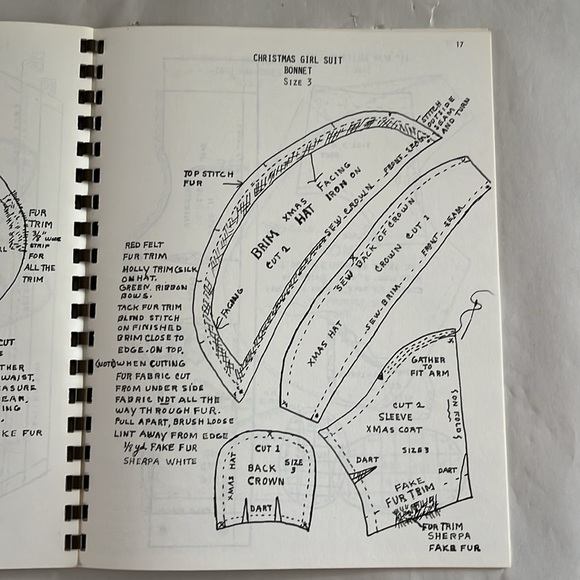 17
CHRISTMAS GIRL SUIT
BONNET
SIZE 3
STITCH
OUTSIDE
SEAM
AND TURN
TOP STITCH
FUR
FACING
IRON ON
FRONT SEAM
BRIM XMAS
HAT
CUT 2
SEW-CROWN
FACING
SEW BACK OF CROWN
CROWN CUT 1
FRONT-SEAM
SEW-BRIM
XMAS HAT
RED FELT
FUR TRIM
HOLLY TRIM (SILK
ON HAT.
GREEN RIBBON
BOWS.
TACK FUR TRIM
BLIND STITCH
ON FINISHED
BRIM CLOSE TO
EDGE. ON TOP.
(NOTE) WHEN CUTTING
FUR FABRIC CUT
FROM UNDER SIDE
FABRIC NOT ALL THE
WAY THROUGH FUR.
PULL APART, BRUSH LOOSE
LINT AWAY FROM EDGE
1/8 yd FAKE FUR
SHERPA WHITE
CUT 1
SIZE
3
BACK
CROWN
XMAS HAT
DART
GATHER
TO FIT ARM
CUT 2
SLEEVE
XMAS COAT
SIZE 3
ON FOLDS
DART
DART
FAKE
FUR TRIM
FUR TRIM
SHERPA
FAKE FUR
FUR
TRIM
3/8" WIDE
STRIP
FOR
ALL THE
TRIM
CUT
WAIST.
KE FUR